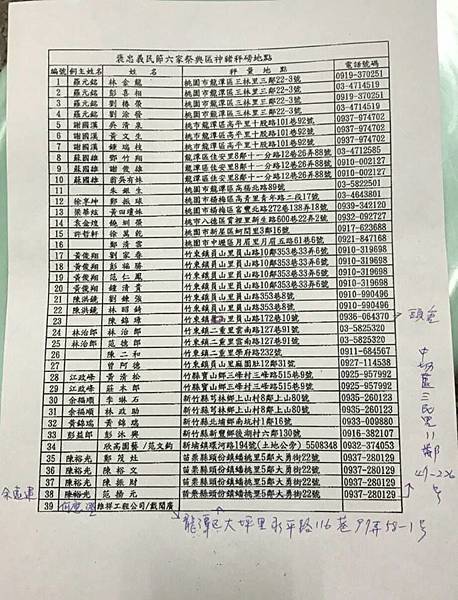 褒忠義民節六家祭典區神豬秤磅地點
編號 飼主姓名 姓名 秤量地點 電話號碼
1 羅元銘 林金龍 桃園市龍潭區三林里三鄰22-3號 0919-370251
2 羅元銘 彭喜相 桃園市龍潭區三林里三鄰22-3號 03-4714519
3 羅元銘 劉椿榮 桃園市龍潭區三林里三鄰22-3號 0919-370251
4 羅元銘 劉淦發 桃園市龍潭區三林里三鄰22-3號 03-4714519
5 謝國漢 吳清泉 桃市龍潭區高平里十股路101巷92號 0937-974702
6 謝國漢 黃文生 桃市龍潭區高平里十股路101巷92號 0937-974702
7 謝國漢 鍾瑞枝 桃市龍潭區高平里十股路101巷92號 0937-974702
8 蘇國雄 鄧竹翔 龍潭區佳安里8鄰十一分路12巷26弄88號 03-4712585
9 蘇國雄 謝欽雄 龍潭區佳安里8鄰十一分路12巷26弄88號 0910-002127
10 蘇國雄 翁吳有妹 龍潭區佳安里8鄰十一分路12巷26弄88號 0910-002127
11 朱銀生 桃園市龍潭區高楊北路89號 03-5822501
12 徐享坤 鄭振球 桃園市楊梅區高青里青年路二段17號 03-4643801
13 梁華炫 黃四瓊 桃園市楊梅區富豐北路272巷138弄18號 0939-342120
14 袁金煌 饒 榮 桃市八德區霄裡里新生路600巷22弄2號 0932-092727
15 許哲軒 余萬乾 桃園市新屋區蚵間里3鄰16號 0917-623688
16 鄭清雲 桃園市中壢區月眉里月眉五路61巷6號 0921-847168
17 黃俊翔 劉家春 竹東鎮員山里員山路10鄰353巷33弄6號 0910-319698
18 黃俊翔 彭福勝 竹東鎮員山里員山路10鄰353巷33弄6號 0910-319698
19 黃俊翔 范仁鳳 竹東鎮員山里員山路10鄰353巷33弄6號 0910-319698
20 黃俊翔 鍾清貴 竹東鎮員山里員山路10鄰353巷33弄6號 0910-319698
21 陳洪鏡 劉鍊強 竹東鎮員山里員山路353巷8號 0910-990496
22 陳洪鏡 林昭錡 竹東鎮員山里員山路353巷8號 0910-990496
23 陳錦璋 竹東鎮員山里員山路172巷10號 0936-064370 頭重
24 林治郎 林治郎 竹東鎮二重里雲南路127巷91號 03-5825320
25 林治郎 范德郎 竹東鎮二重里雲南路127巷91號 03-5825320
26 陳二和 竹東鎮二重里學府路232號 0911-684567
27 曾阿德 竹東鎮員山里麻園肚12鄰31號 0927-114538
28 江政峰 黃清松 竹縣寶山鄉三峰村三峰路515巷9號 0925-957992
29 江政峰 蘇木郎 竹縣寶山鄉三峰村三峰路515巷9號 0925-957992
30 余福順 李琳石 新竹縣芎林鄉上山村8鄰上山80號 0935-260123
31 余福順 林政助 新竹縣芎林鄉上山村8鄰上山80號 0935-260123
32 黃錦瑞 黃錦瑞 新竹縣北埔鄉南坑村1鄰16號 0933-009880
33 彭益郎 彭沐興 新竹縣新豐鄉後湖村六鄰130號 0916-382107
34 欣高園藝/范文鈞 新埔鎮運河路194號(土地公旁) 5508348 0932-374053
35 陳裕光 鄭茂灶 苗栗縣頭份鎮蟠桃里5鄰大勇街22號 0937-280129
36 陳裕光 陳裕文 苗栗縣頭份鎮蟠桃里5鄰大勇街22號 0937-280129
37 陳裕光 陳振財 苗栗縣頭份鎮蟠桃里5鄰大勇街22號 0937-280129
38 陳裕光 范揚元 苗栗縣頭份鎮蟠桃里5鄰大勇街22號 0937-280129
39 維祥工程公司/戴開廣
中壢區三民里11鄰
49-226號
龍潭區大坪里永平路116巷99弄58-1号